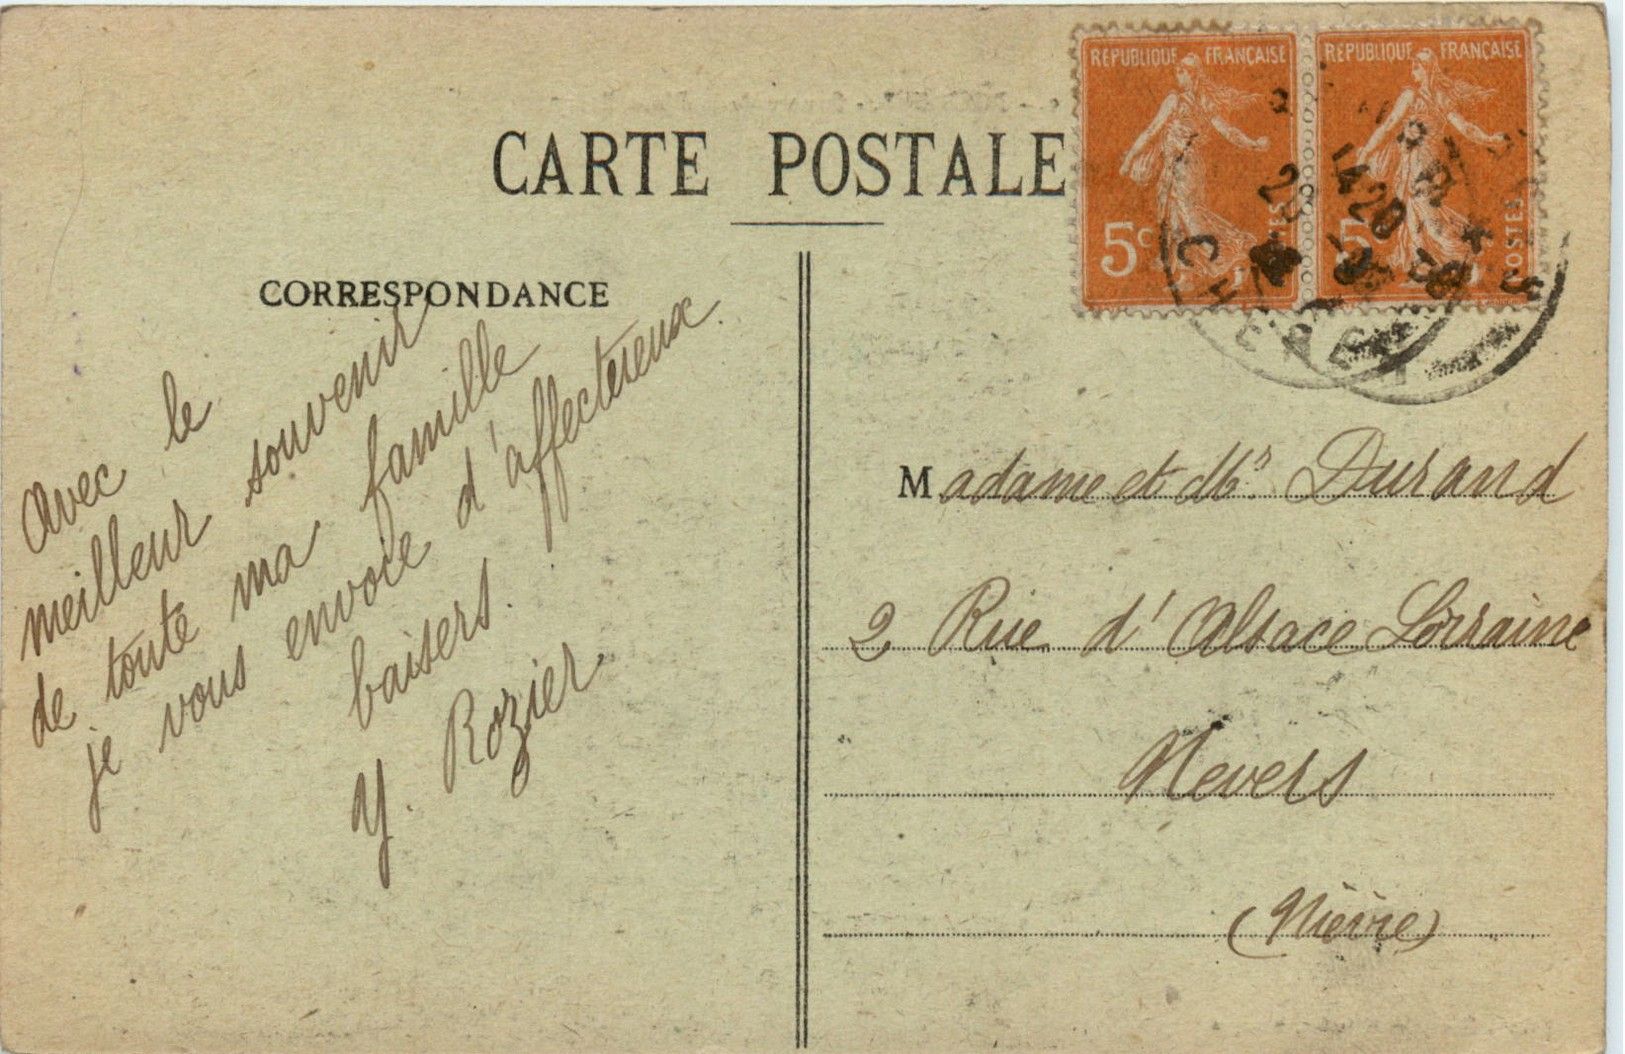 RÉPUBLIQUE FRANÇAISE
RÉPUBLIQUE FRANÇAISE
5c
5c
POSTES
POSTES
CHER
CARTE POSTALE
CORRESPONDANCE
Avec le
meilleur souvenir
de toute ma famille
je vous envoie d'affectueux
baisers.
Y. Rozier
Madame et Mr. Durand
2 Rue d'Alsace Lorraine
Nevers
(Nièvre)